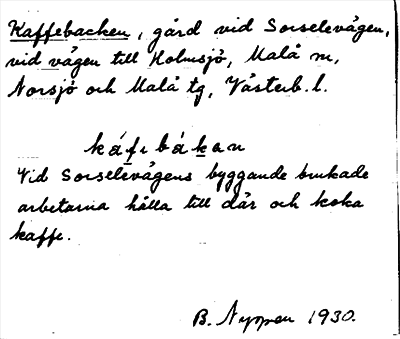 Kaffebacken, gård vid Sorselevägen,
vid vägen till Holmsjö, Malå sn,
Norsjö och Malå tg, Västerb. l.
káfıbákan
Vid Sorselevägens byggande brukade
arbetarna hålla till där och koka
kaffe.
B. Nyppen 1930.